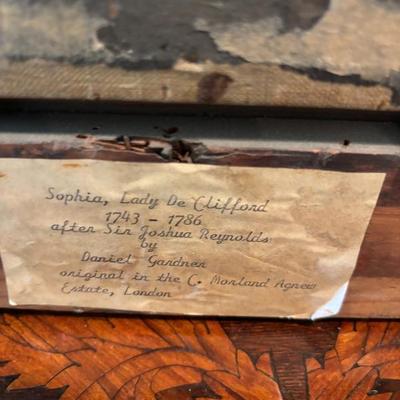 Sophia, Lady De Clifford
1743 - 1786
after Sir Joshua Reynolds
by
Daniel Gardner
original in the C. Morland Agnew
Estate, London